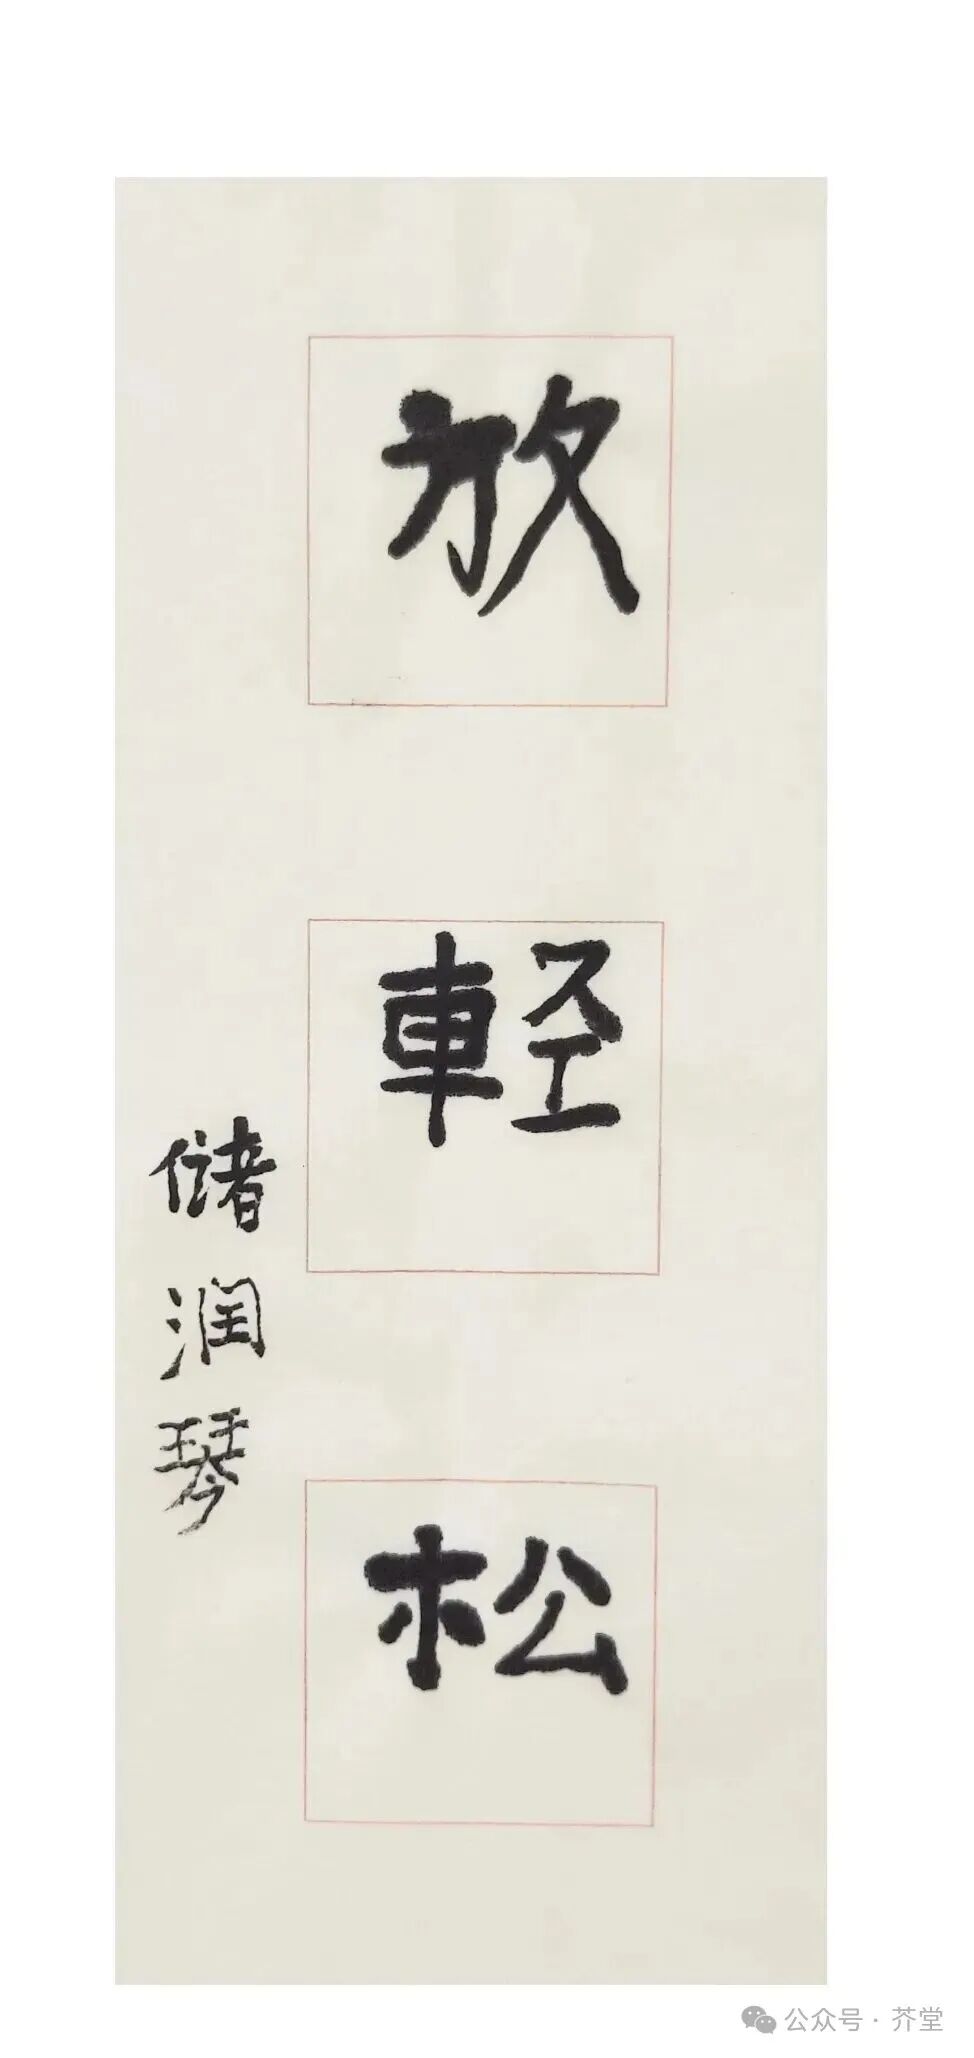 放
軽
松
储润琴
公众号·芥堂